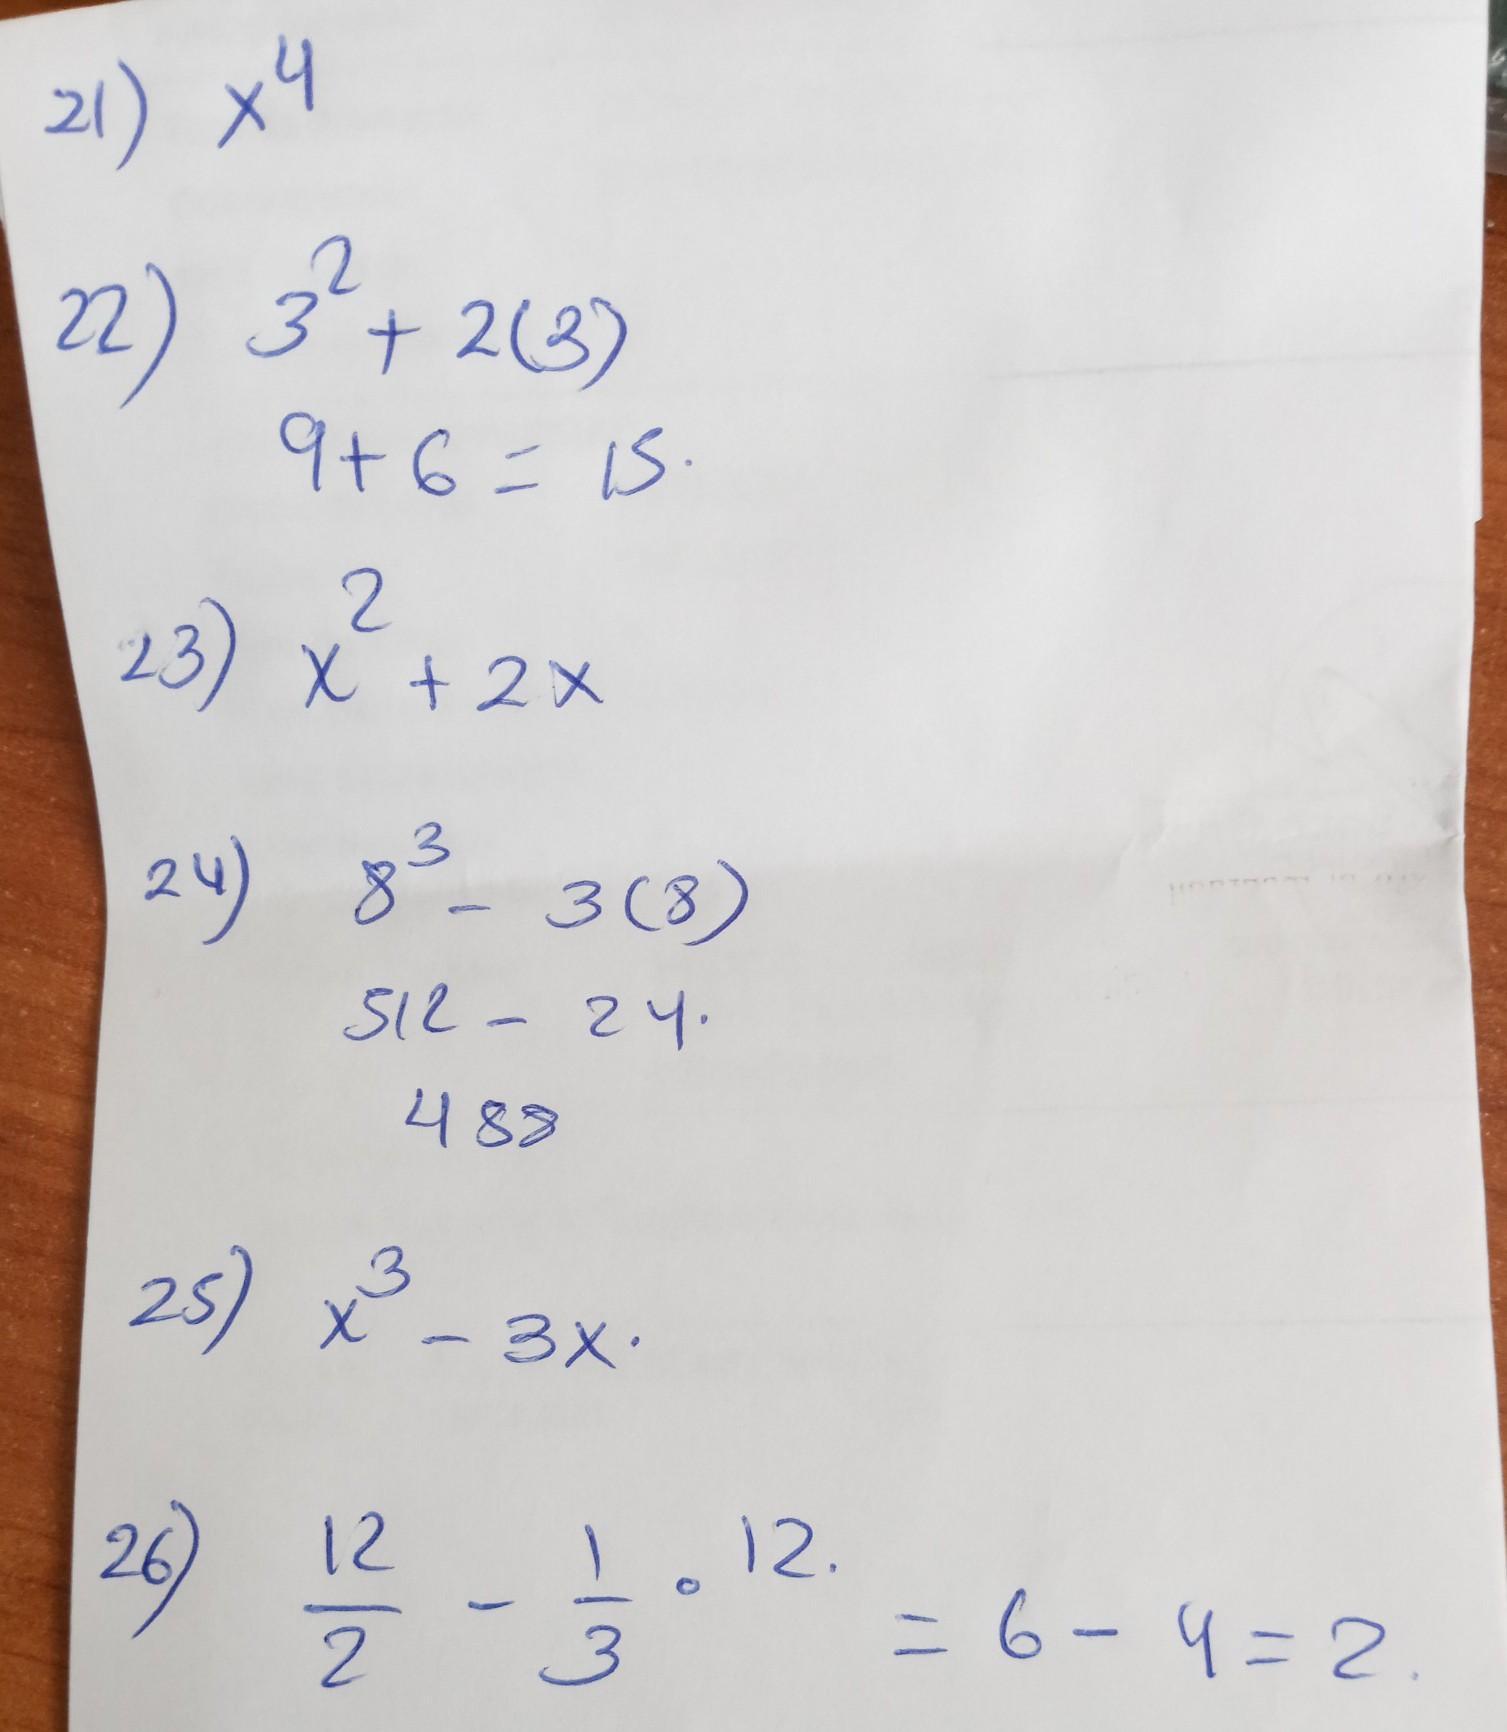 21) x⁴
22) 3² + 2(3)
9 + 6 = 15.
23) x² + 2x
24) 8³ - 3(8)
512 - 24.
488
25) x³ - 3x.
26) 12/2 - 1/3 · 12. = 6 - 4 = 2.